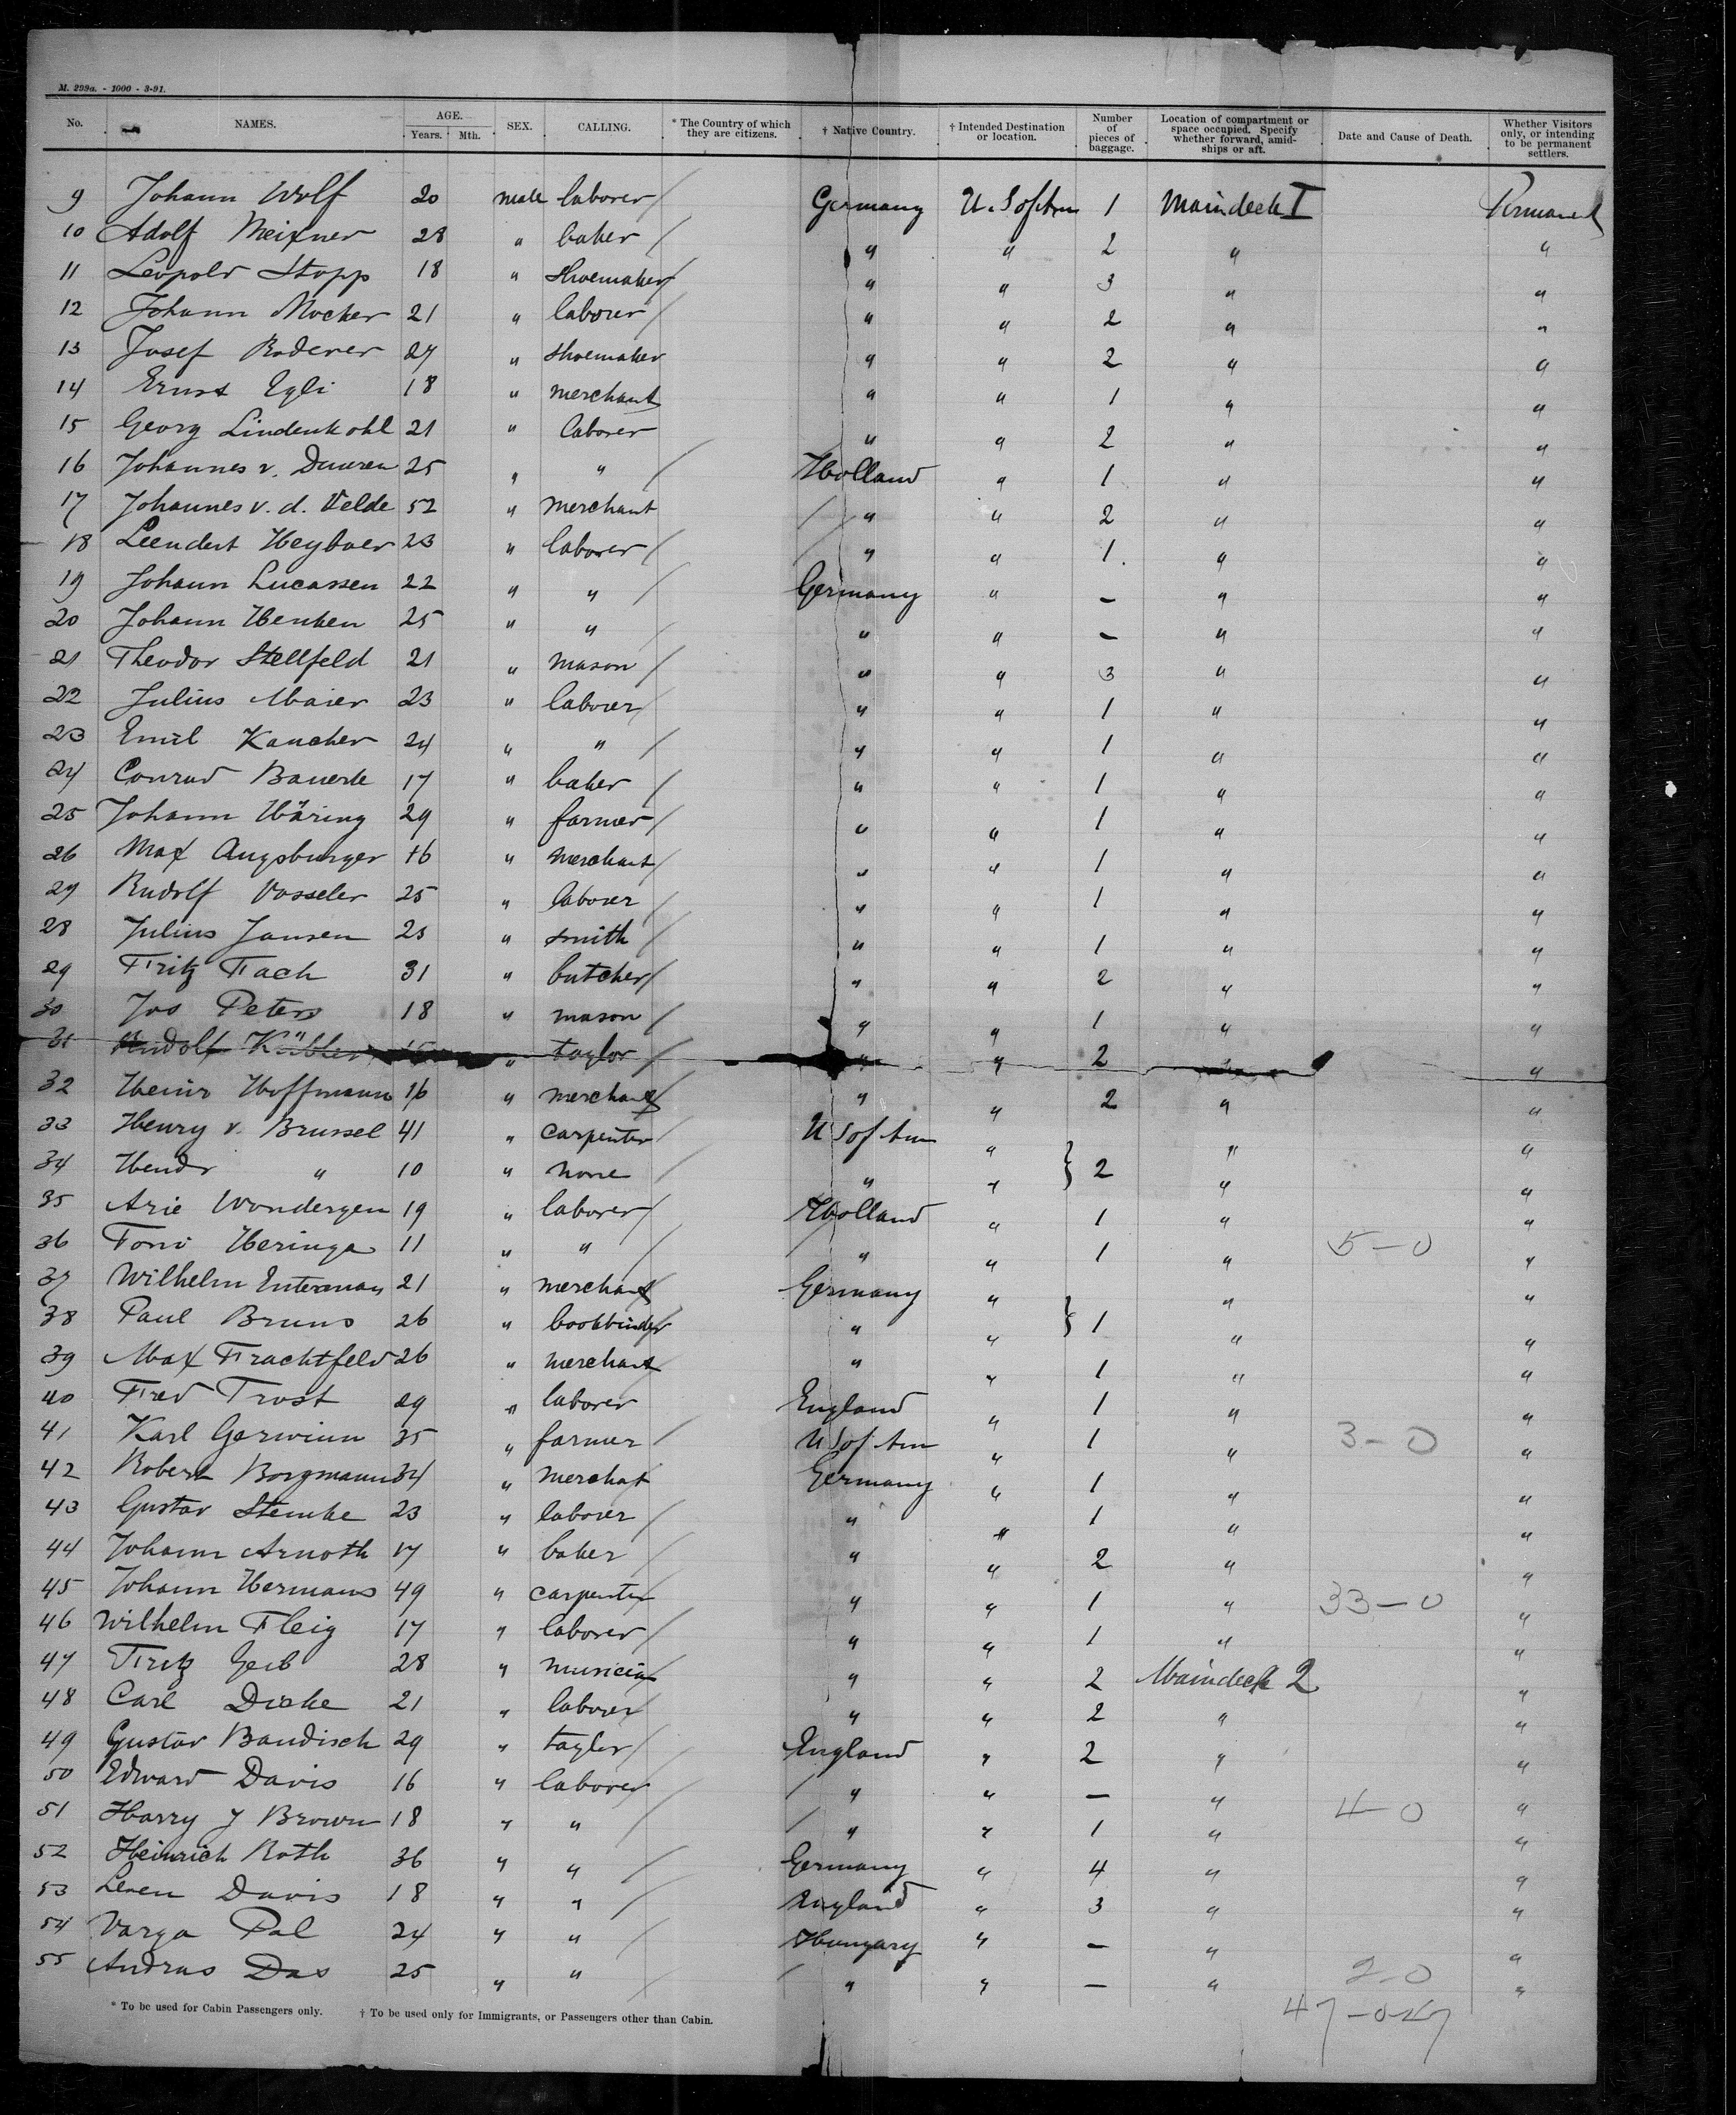 M. 299a. - 1000 - 3-91.
No. NAMES. AGE. Years. Mth. SEX. CALLING. * The Country of which they are citizens. † Native Country. † Intended Destination or location. Number of pieces of baggage. Location of compartment or space occupied. Specify whether forward, amid-ships or aft. Date and Cause of Death. Whether Visitors only, or intending to be permanent settlers.
9 Johann Wolf 20 male laborer / Germany U.S of Am 1 Maindeck I Permanent
10 Adolf Meixner 28 " baker / " " 2 " "
11 Leopold Stopp 18 " Shoemaker / " " 3 " "
12 Johann Mocker 21 " laborer / " " 2 " "
13 Josef Roderer 27 " shoemaker " " 2 " "
14 Ernst Egli 18 " merchant " " 1 " "
15 Georg Lindenkohl 21 " laborer " " 2 " "
16 Johannes v. 25 " " / Holland " 1 " "
17 Johannes v. d. Velde 52 " merchant / " " 2 " "
18 Leendert Heyboer 23 " laborer / / " " 1 " "
19 Johann Lucassen 22 " " / Germany " – " "
20 Johann Henken 25 " " / " " – " "
21 Theodor Stellfeld 21 " mason / " " 3 " "
22 Julius Maier 23 " laborer / " " 1 " "
23 Emil Kaucher 24 " " / " " 1 " "
24 Conrad Bauerle 17 " baker / " " 1 " "
25 Johann Häring 29 " farmer / " " 1 " "
26 Max Augsburger 16 " merchant / " " 1 " "
27 Rudolf Vosseler 25 " laborer / " " 1 " "
28 Julius Jansen 25 " smith / " " 1 " "
29 Fritz Fach 31 " butcher / " " 2 " "
30 Jos Peters 18 " mason / " " 1 " "
31 Rudolf Kübler " taylor / " " 2 " "
32 Heinr Hoffmann 16 " merchant / " " 2 " "
33 Henry v. Brussel 41 " carpenter / U S of Am " } 2 " "
34 Hendr " 10 " none / " " " "
35 Arie Wondergen 19 " laborer / Holland " 1 " "
36 Toni Heringa 11 " " / / " " 1 " 5-0 "
37 Wilhelm Interman 21 " merchant / Germany " } 1 " "
38 Paul Bruns 26 " bookbinder / " " " "
39 Max Frachtfeld 26 " merchant " " 1 " "
40 Fred Trost 29 " laborer England " 1 " "
41 Karl Gerwinn 35 " farmer / U S of Am " 1 " 3-0 "
42 Robert Borgmann 34 " merchat Germany " 1 " "
43 Gustav Stemke 23 " laborer / " " 1 " "
44 Johann Arnoth 17 " baker / " " 2 " "
45 Johann Hermans 49 " carpenter " " 1 " 33-0 "
46 Wilhelm Fleig 17 " laborer / " " 1 " "
47 Fritz Geib 28 " musician " " 2 Maindeck 2 "
48 Carl Dicke 21 " laborer / " " 2 " "
49 Gustav Baudisch 29 " taylor / England " 2 " "
50 Edward Davis 16 " laborer / / " " – " "
51 Harry J Brown 18 " " / / " " 1 " 4-0 "
52 Heinrich Roth 36 " " / Germany " 4 " "
53 Davis 18 " " / England " 3 " "
54 Varga Pal 24 " " / Hungary " – " "
55 Andras Das 25 " " / / " " – " 2-0 "
* To be used for Cabin Passengers only. † To be used only for Immigrants, or Passengers other than Cabin.
47-0-